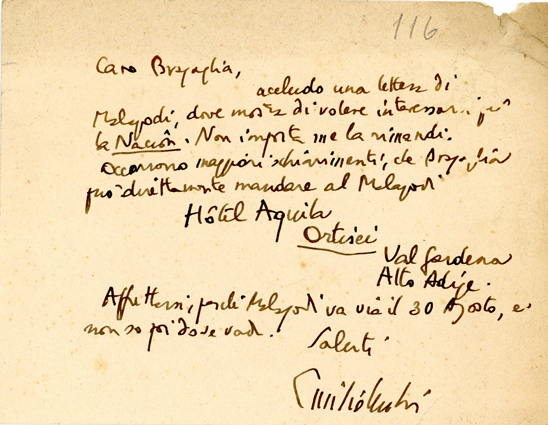 116
Caro Bragaglia,
accludo una lettera di
Malagodi, dove mostra di volere interessarsi per
la Nación. Non importa me la rimandi.
Occorrono maggiori schiarimenti, che Bragaglia
può direttamente mandare al Malagodi
Hôtel Aquila
Ortisei
Val Gardena
Alto Adige.
Affrettarsi, perché Malagodi va via il 30 Agosto, e
non so poi dove vada.
Saluti